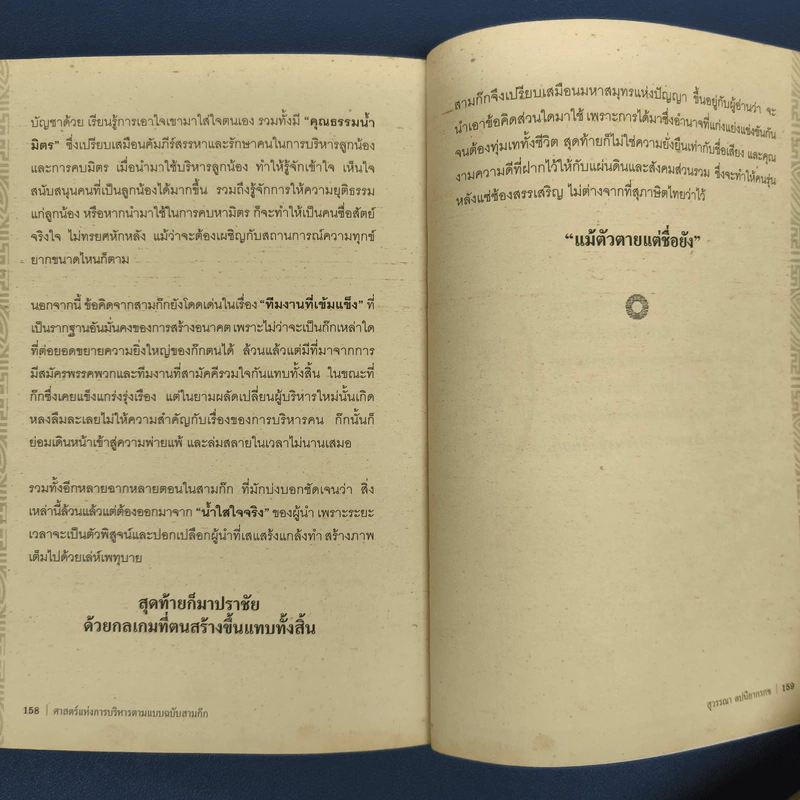 บัญชาด้วย เรียนรู้การเอาใจเขามาใส่ใจตนเอง รวมทั้งมี “คุณธรรมน้ำ
มิตร” ซึ่งเปรียบเสมือนคัมภีร์สรรหาและรักษาคนในการบริหารลูกน้อง
และการคบมิตร เมื่อนำมาใช้บริหารลูกน้อง ทำให้รู้จักเข้าใจ เห็นใจ
สนับสนุนคนที่เป็นลูกน้องได้มากขึ้น รวมถึงรู้จักการให้ความยุติธรรม
แก่ลูกน้อง หรือหากนำมาใช้ในการคบหามิตร ก็จะทำให้เป็นคนซื่อสัตย์
จริงใจ ไม่ทรยศหักหลัง แม้ว่าจะต้องเผชิญกับสถานการณ์ความทุกข์
ยากขนาดไหนก็ตาม
นอกจากนี้ ข้อคิดจากสามก๊กยังโดดเด่นในเรื่อง “ทีมงานที่เข้มแข็ง” ที่
เป็นรากฐานอันมั่นคงของการสร้างอนาคต เพราะไม่ว่าจะเป็นก๊กเหล่าใด
ที่ต่อยอดขยายความยิ่งใหญ่ของก๊กตนได้ ล้วนแล้วแต่มีที่มาจากการ
มีสมัครพรรคพวกและทีมงานที่สามัคคีรวมใจกันแทบทั้งสิ้น ในขณะที่
ก๊กซึ่งเคยแข็งแกร่งรุ่งเรือง แต่ในยามผลัดเปลี่ยนผู้บริหารใหม่นั้นเกิด
หลงลืมละเลยไม่ให้ความสำคัญกับเรื่องของการบริหารคน ก๊กนั้นก็
ย่อมเดินหน้าเข้าสู่ความพ่ายแพ้ และล่มสลายในเวลาไม่นานเสมอ
รวมทั้งอีกหลายฉากหลายตอนในสามก๊ก ที่มักบ่งบอกชัดเจนว่า สิ่ง
เหล่านี้ล้วนแล้วแต่ต้องออกมาจาก “น้ำใสใจจริง” ของผู้นำ เพราะระยะ
เวลาจะเป็นตัวพิสูจน์และปอกเปลือกผู้นำที่เสแสร้งแกล้งทำ สร้างภาพ
เต็มไปด้วยเล่ห์เพทุบาย
สุดท้ายก็มาปราชัย
ด้วยกลเกมที่ตนสร้างขึ้นแทบทั้งสิ้น
158 | ศาสตร์แห่งการบริหารตามแบบฉบับสามก๊ก
สามก๊กจึงเปรียบเสมือนมหาสมุทรแห่งปัญญา ขึ้นอยู่กับผู้อ่านว่า จะ
นำเอาข้อคิดส่วนใดมาใช้ เพราะการได้มาซึ่งอำนาจที่แก่งแย่งแข่งขันกัน
จนต้องทุ่มเททั้งชีวิต สุดท้ายก็ไม่ใช่ความยั่งยืนเท่ากับชื่อเสียง และคุณ
งามความดีที่ฝากไว้ให้กับแผ่นดินและสังคมส่วนรวม ซึ่งจะทำให้คนรุ่น
หลังแซ่ซ้องสรรเสริญ ไม่ต่างจากที่สุภาษิตไทยว่าไว้
“แม้ตัวตายแต่ชื่อยัง”
สุวรรณา ตปนียากรกช | 159